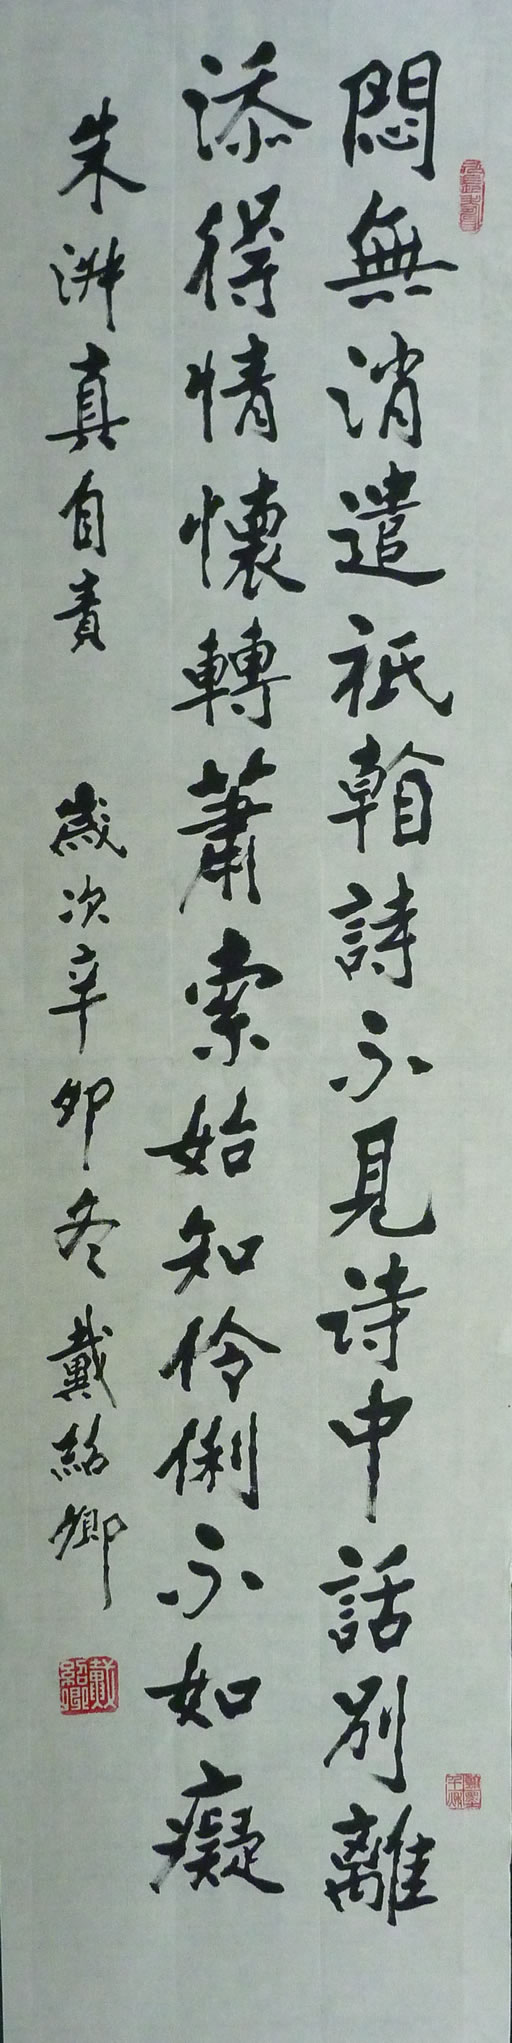 悶無消遣祇看詩不見詩中話別離
添得情懷轉蕭索始知伶俐不如癡
朱淑真自責 歲次辛卯冬戴紹卿
戴紹卿